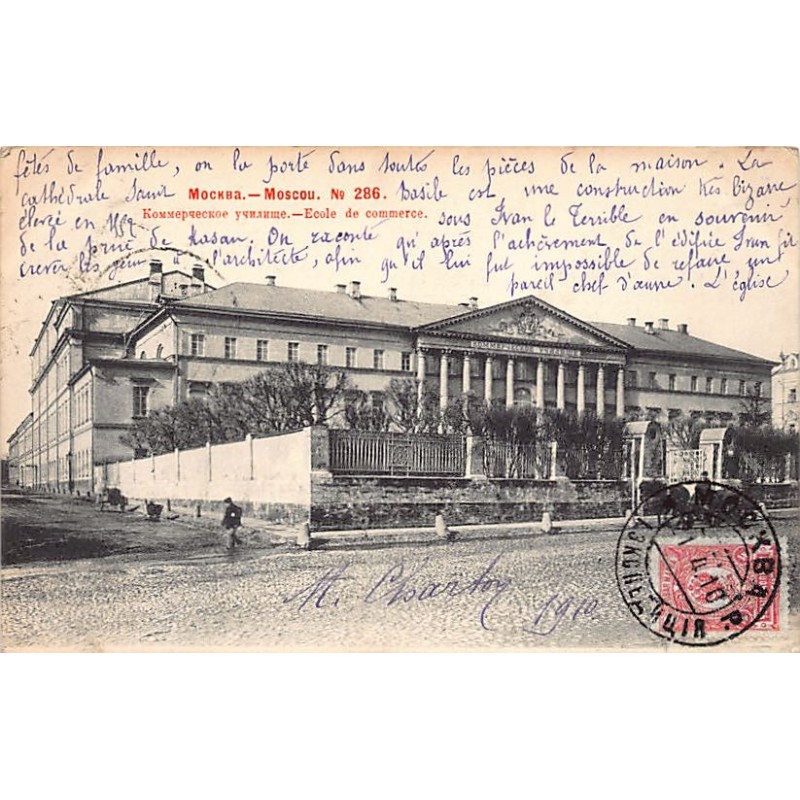 fêtes de famille, on la porte dans toutes les pièces de la maison. La
cathédrale Saint Basile est une construction très bizarre
Москва.—Moscou. № 286.
Коммерческое училище.—Ecole de commerce.
élevée en sous Ivan le Terrible en souvenir
de la prise de Kasan. On raconte qu'après l'achèvement de l'édifice Ivan fit
crever les yeux à l'architecte, afin qu'il lui fut impossible de refaire un
pareil chef d'œuvre. L'église
КОММЕРЧЕСКОЕ УЧИЛИЩЕ
M. Charton 1910
МОСКВА
ЭКСПЕДИЦІЯ